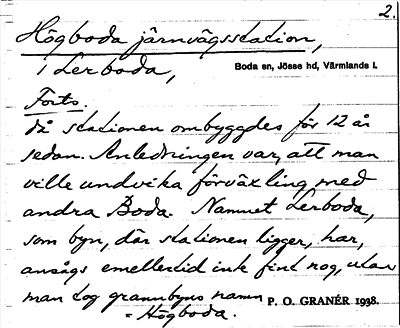 2.
Högboda järnvägsstation,
i Lerboda,
Boda sn, Jösse hd, Värmlands l.
Forts.
då stationen ombyggdes för 12 år
sedan. Anledningen var, att man
ville undvika förväxling med
andra Boda. Namnet Lerboda,
som byn, där stationen ligger, har,
ansågs emellertid inte fint nog, utan
man tog grannbyns namn
= Högboda.
P. O. GRANÉR 1938.